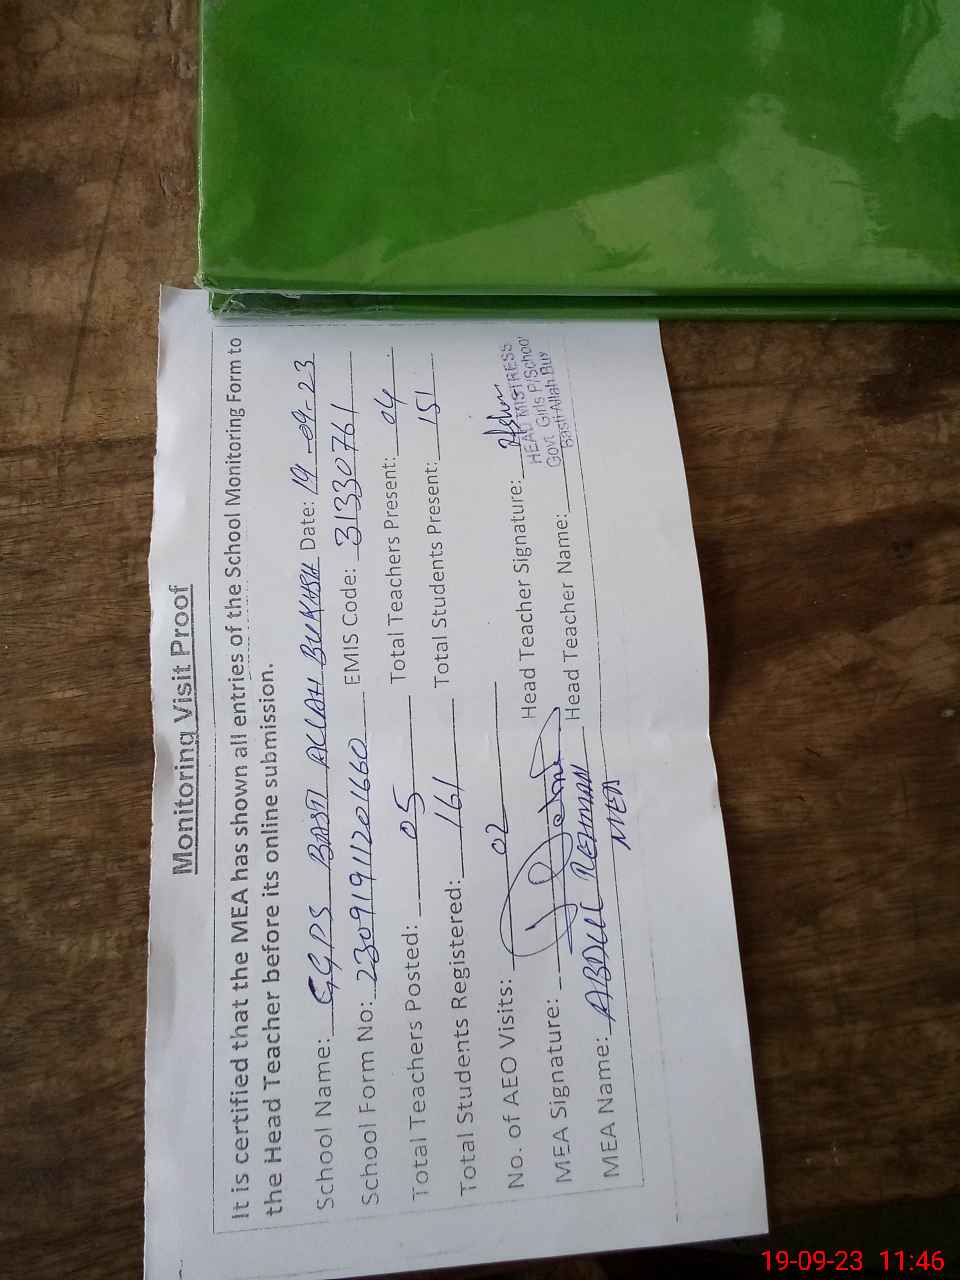 Monitoring Visit Proof
It is certified that the MEA has shown all entries of the School Monitoring Form to
the Head Teacher before its online submission.
School Name: GGPS BASTI ALLAH BUKHSH Date: 19-09-23
School Form No: 23091911201660 EMIS Code: 31330761
Total Teachers Posted: 05 Total Teachers Present: 04
Total Students Registered: 161 Total Students Present: 151
No. of AEO Visits: 02
MEA Signature: Head Teacher Signature:
HEAD MISTRESS
Govt. Girls P/School
Basti Allah Bux
MEA Name: ABDUL REHMAN Head Teacher Name:
MEA
19-09-23 11:46